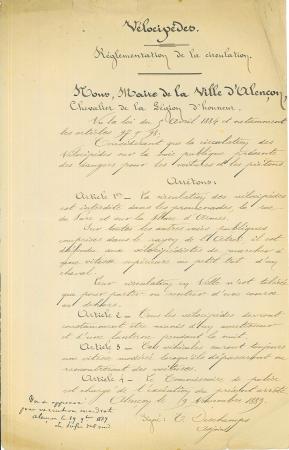 Vélocipèdes.
Réglementation de la circulation.
Nous, Maire de la Ville d'Alençon,
Chevalier de la Légion d'honneur.
Vu la loi du 5 Avril 1884 et notamment
les articles 97 & 98.
Considérant que la circulation des
vélocipèdes sur la voie publique présente
des dangers pour les voitures et les piétons,
Arrêtons:
Article 1er _ La circulation des vélocipèdes
est interdite dans les promenades, la rue
du et sur la place d'Armes.
Sur toutes les autres voies publiques
comprises dans le rayon de l'Octroi il est
défendu aux vélocipédistes de marcher à
une vitesse supérieure au petit trot d'un
cheval.
Leur circulation en Ville n'est tolérée
que pour partir ou rentrer d'une course
au dehors.
Article 2 _ Tous les vélocipèdes devront
constamment être munis d'un avertisseur
et d'une lanterne pendant la nuit.
Article 3 _ Ces véhicules auront toujours
une vitesse modérée lorsqu'ils dépasseront ou
rencontreront des voitures.
Article 4 _ Le Commissaire de police
est chargé de l'exécution du présent arrêté.
Alençon, le 9 9bre 1889.
Signé:
Vu et approuvé
pour exécution
Alençon le 1889
Le Préfet